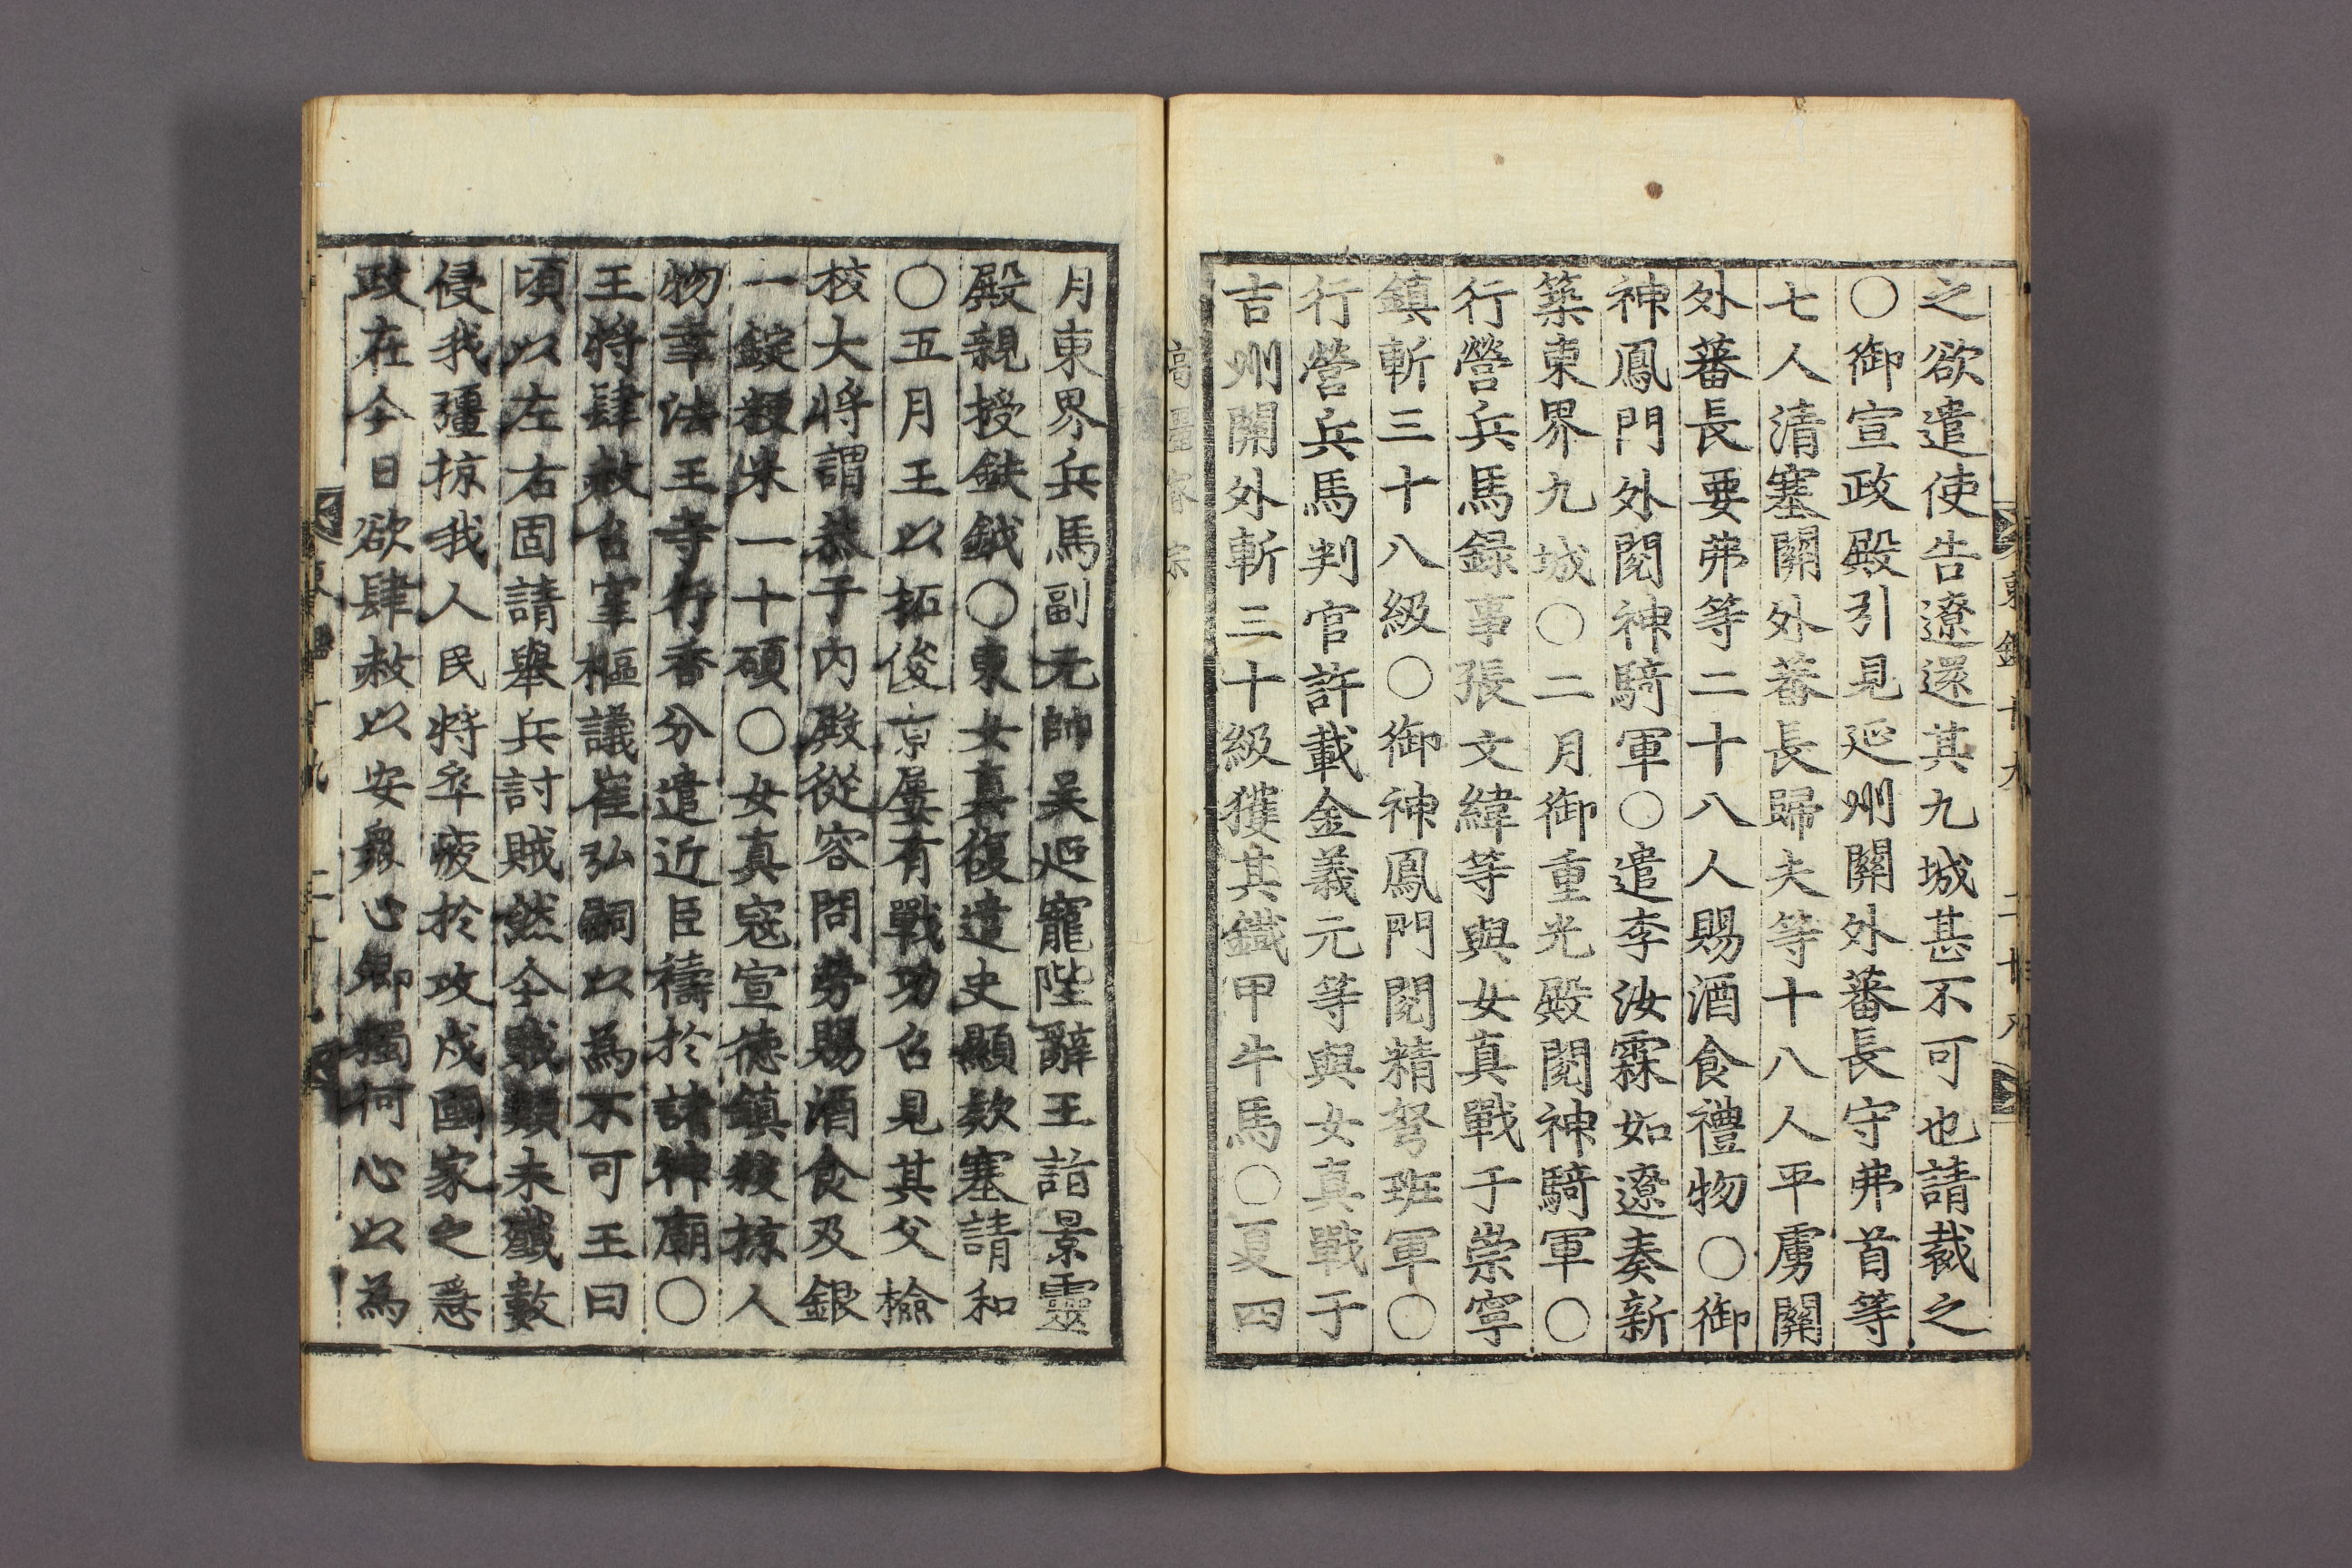 之欲遣使告遼還其九城甚不可也請裁之
○御宣政殿引見延州關外蕃長守弗首等
七人清塞關外蕃長歸夫等十八人平虜關
外蕃長要弗等二十八人賜酒食禮物○御
神鳳門外閱神騎軍○遣李汝霖如遼奏新
築東界九城○二月御重光殿閱神騎軍○
行營兵馬録事張文緯等與女真戰于崇寧
鎮斬三十八級○御神鳳門閱精弩班軍○
行營兵馬判官許載金義元等與女真戰于
吉州關外斬三十級獲其鐵甲牛馬○夏四
高麗睿宗
月東界兵馬副元帥吴延寵陛辭王詣景靈
殿親授鈇鉞○東女真復遣史顯欵塞請和
○五月王以拓俊京屢有戰功召見其父檢
校大將謂恭于内殿從容問勞賜酒食及銀
一錠穀米一十碩○女真寇宣德鎮殺掠人
物幸法王寺行香分遣近臣禱於諸神廟○
王將肆赦台宰樞議崔弘嗣以為不可王曰
頃以左右固請舉兵討賊然今賊類未殲數
侵我疆掠我人民將卒疲於攻戍國家之憂
政在今日欲肆赦以安衆心卿獨何心以為